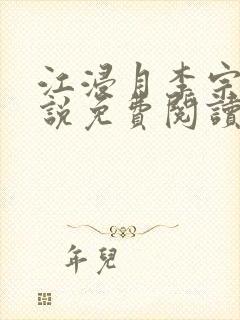 江浸月李宗
說免費閱讀
年兒